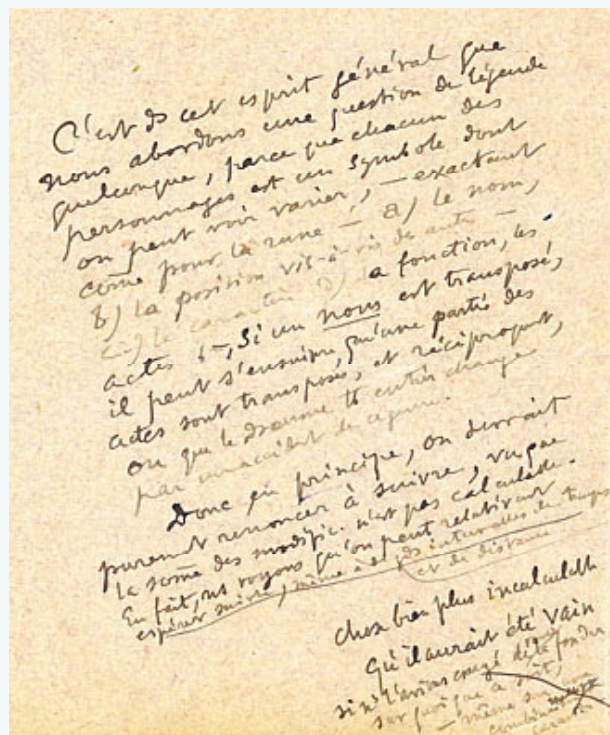 C'est ds cet esprit général que
nous abordons une question de légende
quelconque, parce que chacun des
personnages est un symbole dont
on peut voir varier, — exactemt
come pour la rune — a) le nom,
b) la position vis-à-vis des autres —
c) le caractère d) la fonction, les
actes Si un nous est transposé,
il peut s'ensuivre qu'une partie des
actes sont transposés, et réciproqt,
ou que le drame tt entier change
par un accident de ce genre.
Donc en principe, on devrait
puremt renoncer à suivre, vu que
la some des modific. n'est pas calculable.
En fait, ns voyons qu'on peut relativemt
espérer suivre, même à des intervalles de temps
et de distance
chose bien plus incalculable
qu'il aurait été vain
si ns l'avions de la fonder
sur quoi que ce soit,
— même sur